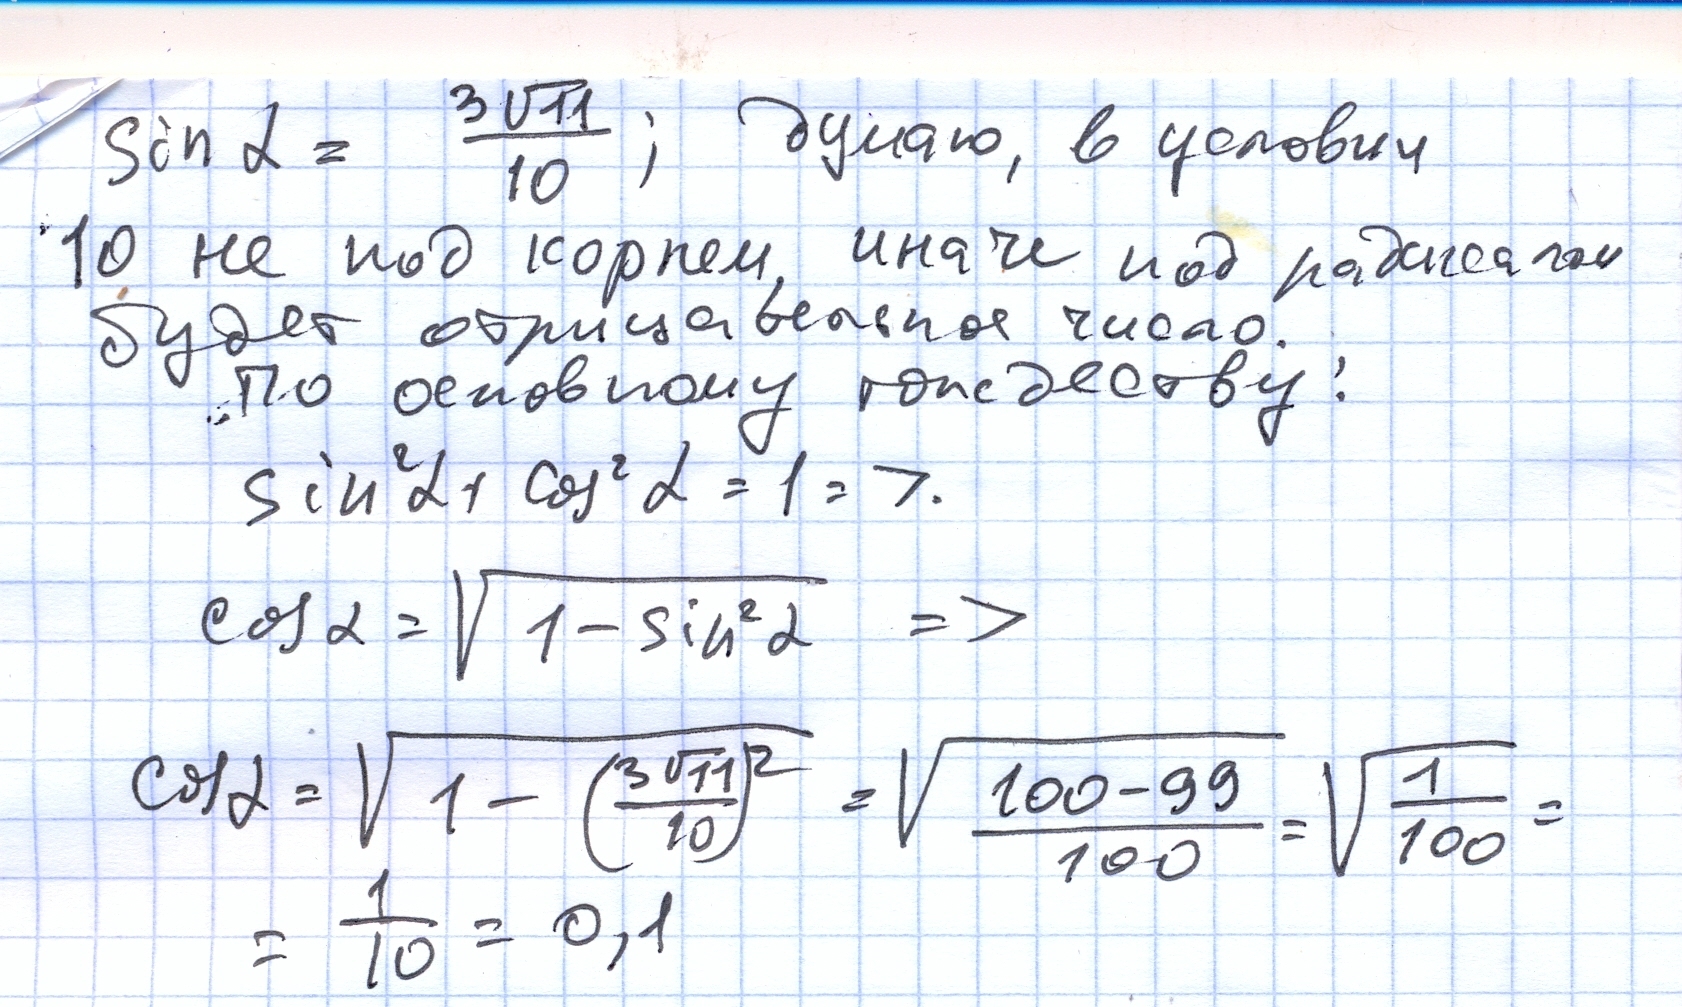 sin α = 3√11/10; думаю, в условии
10 не под корнем, иначе под радикалом
будет отрицательное число.
По основному тождеству:
sin²α + cos²α = 1 =>.
cos α = √(1 - sin²α) =>
cos α = √(1 - (3√11/10)²) = √((100-99)/100) = √(1/100) =
= 1/10 = 0,1